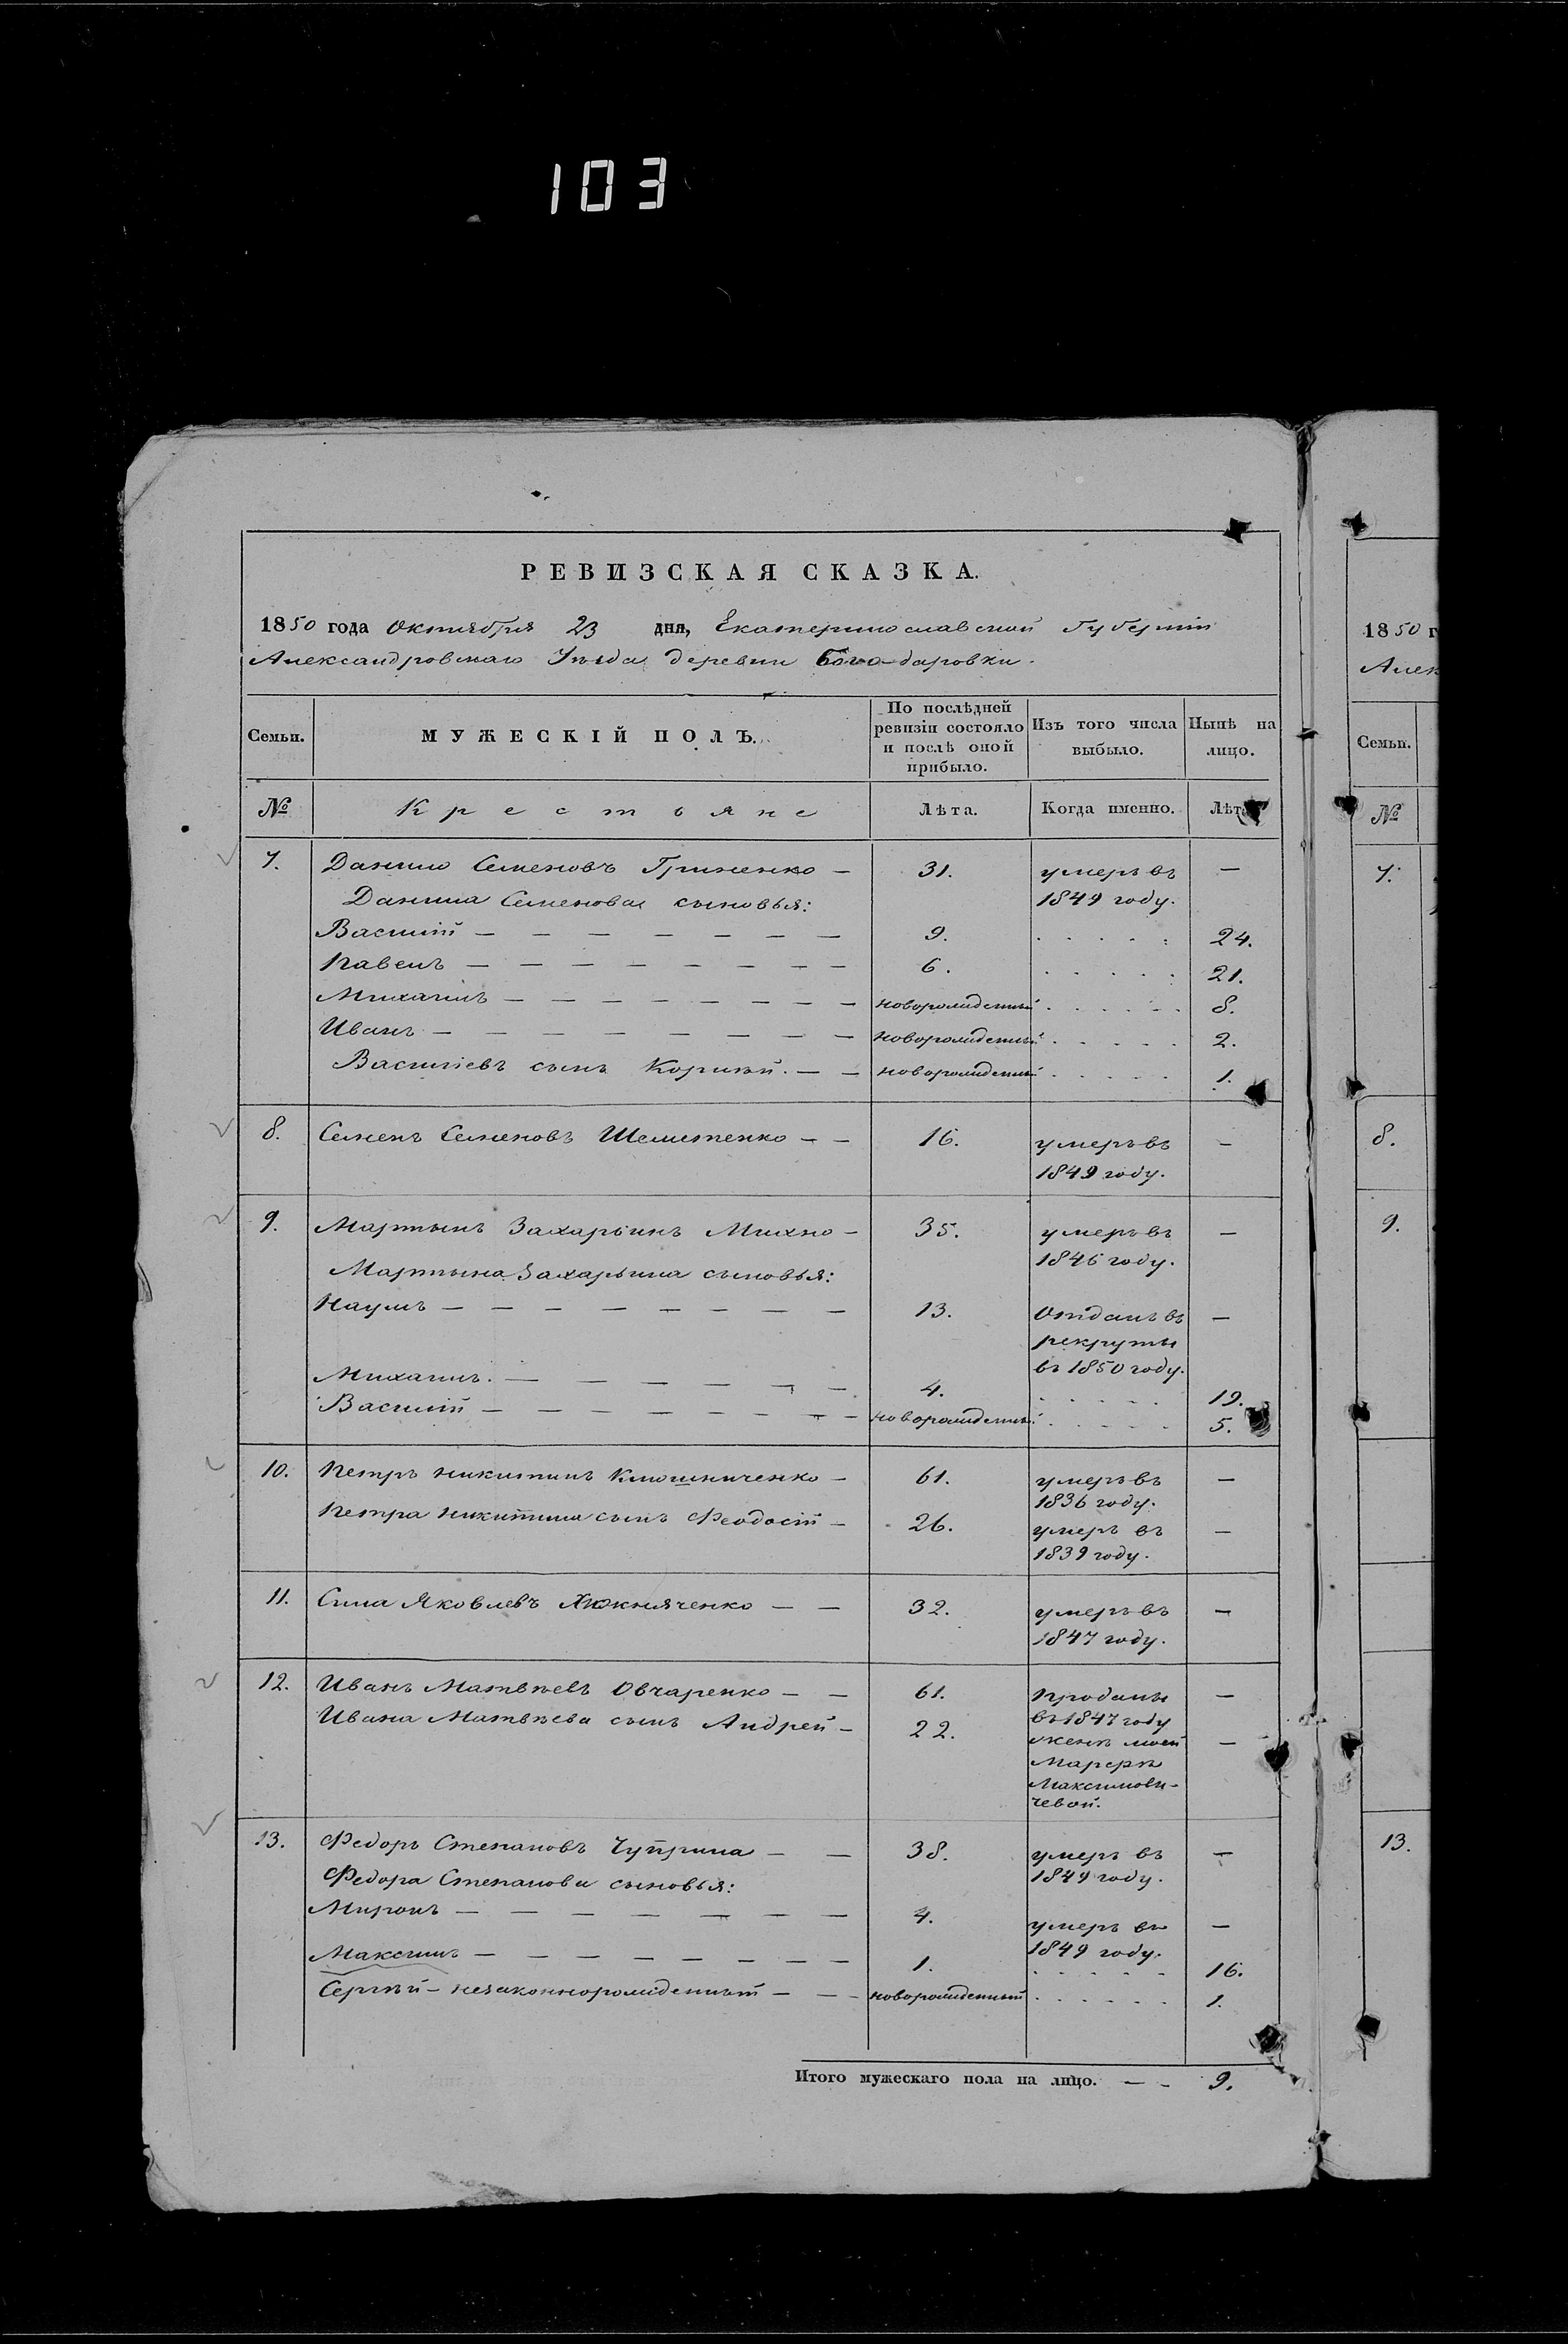 103
РЕВИЗСКАЯ СКАЗКА.
1850 года Октября 23 дня, Екатеринославской Губернiи
Александровскаго Уѣзда деревни Богодаровки.
Семьи. МУЖЕСКIЙ ПОЛЪ. По послѣдней ревизiи состояло и послѣ оной прибыло. Изъ того числа выбыло. Нынѣ на лицо.
№ Крестьяне Лѣта. Когда именно. Лѣта
7. Данило Семеновъ Гриненко — 31. умеръ въ —
Данила Семенова сыновья: 1849 году.
Василiй — 9. 24.
Павелъ — 6. 21.
Михаилъ — новорожденный 8.
Иванъ — новорожденный 2.
Василiевъ сынъ Корнѣй. — новорожденный 1.
8. Семенъ Семеновъ Шелестенко — 16. умеръ въ —
1849 году.
9. Мартынъ Захарьинъ Михно — 35. умеръ въ —
1846 году.
Мартына Захарьина сыновья:
Наумъ — 13. Отданъ въ —
рекруты
въ 1850 году.
Михаилъ. — 4. 19.
Василiй — новорожденный 5.
10. Петръ Никитинъ Клюшниченко — 61. умеръ въ —
1836 году.
Петра Никитина сынъ Феодосiй — 26. умеръ въ —
1839 году.
11. Сила Яковлевъ — 32. умеръ въ —
1847 году.
12. Иванъ Матвѣевъ Овчаренко — 61. Проданы —
Ивана Матвѣева сынъ Андрей — 22. въ 1847 году
женѣ моей —
Марфѣ
Максимови-
чевой.
13. Федоръ Степановъ Чуприна — 38. умеръ въ —
Федора Степанова сыновья: 1849 году.
Миронъ — 4. умеръ въ —
1849 году.
Максимъ — 1. 16.
Сергѣй — незаконнорожденный — новорожденный 1.
Итого мужескаго пола на лицо. — 9.
1850 г
Алек
Семьи.
№
7.
8.
9.
13.